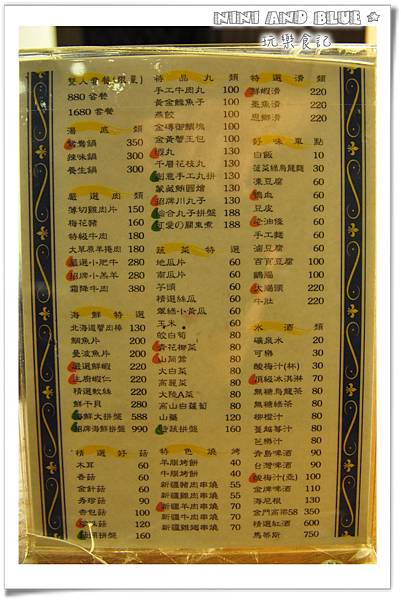 NINI AND BLUE
玩樂食記
雙人套餐
880 套餐
1680 套餐
湯底類
鴛鴦鍋 350
辣味鍋 300
養生鍋 300
嚴選肉類
薄切雞肉片 150
梅花豬 160
特級牛肉 180
大草原羊捲肉 180
嚴選小肥牛 280
招牌小羔羊 280
霜降牛肉 380
海鮮特選
北海道蟹肉棒 130
鯛魚片 200
曼波魚片 200
嚴選鮮蝦 220
主廚蝦仁 220
精選軟絲 220
鮮干貝 280
海鮮大拼盤 588
招牌海鮮拼盤 990
精選好菇
木耳 60
香菇 60
金針菇 60
秀珍菇 90
杏包菇 100
珍味菇 120
菇類拼盤 160
特品丸類
手工牛肉丸 100
黃金鱈魚子 100
燕餃 100
金磚御鯛塊 100
金黃蟹王包 100
蝦丸 130
千層花枝丸 130
創意手工丸拼 130
招牌川丸子 130
綜合丸子拼盤 188
可愛の關東煮 188
蔬菜特選
地瓜片 60
南瓜片 60
芋頭 60
精選絲瓜 60
翠綠小黃瓜 60
玉米 60
皎白筍 80
青花椰菜 80
山茼蒿 80
大白菜 80
高麗菜 80
大陸A菜 80
高山白蘿蔔 80
山藥 120
時蔬拼盤 160
特色燒烤
羊脂烤餅 40
牛脂烤餅 40
新疆豬肉串燒 55
新疆雞肉串燒 55
新疆羊肉串燒 70
新疆牛肉串燒 70
新疆雞翅串燒 70
特選滑類
鮮蝦滑 220
墨魚滑 220
220
好味單點
白飯 10
菠菜綠烏龍麵 30
凍豆腐 60
鴨血 60
豆皮 60
老油條 60
手工麵 60
滷豆腐 60
百頁豆腐 100
鵪鶉 160
大腸頭 220
牛肚 220
水酒類
礦泉水 20
可樂 30
酸梅汁(杯) 30
頂級冰淇淋 70
無糖烏龍茶 80
無糖綠茶 80
柳橙汁 80
蔓越莓汁 80
芭樂汁 80
青島啤酒 90
台灣啤酒 90
酸梅汁(壺) 100
金牌啤酒 100
海尼根 130
金門高粱58 350
精選紅酒 600
馬蒂斯 750